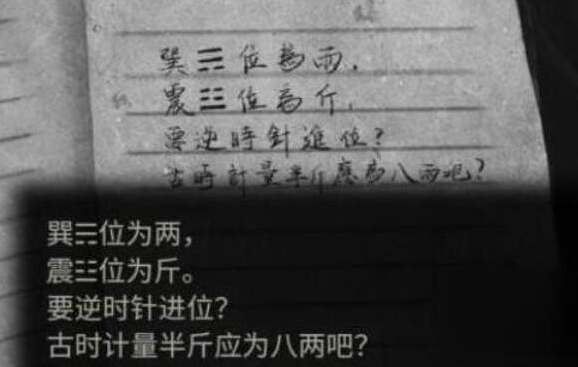 巽☴位為兩，
震☳位為斤，
要逆時針進位？
古時計量半斤應為八兩吧？
巽☴位为两，
震☳位为斤。
要逆时针进位？
古时计量半斤应为八两吧？